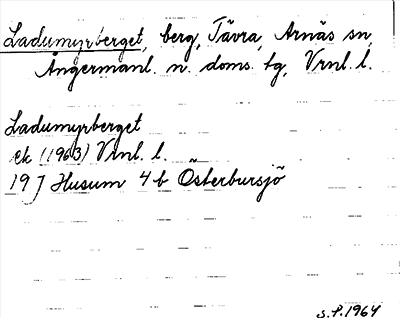 Ladumyrberget, berg, Tävra, Arnäs sn,
Ångermanl. n. doms. tg, Vrnl. l.
Ladumyrberget
ek (1963) Vrnl. l.
19 J Husum 4 b Österbursjö
s.f. 1964